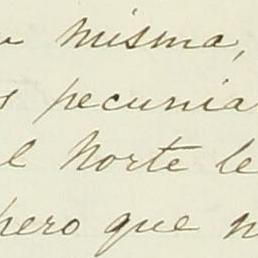 misma,
pecunia
el Norte le
pero que n